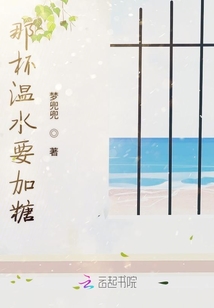 那杯温水要加糖
梦兜兜 ◎ 著
云起书院